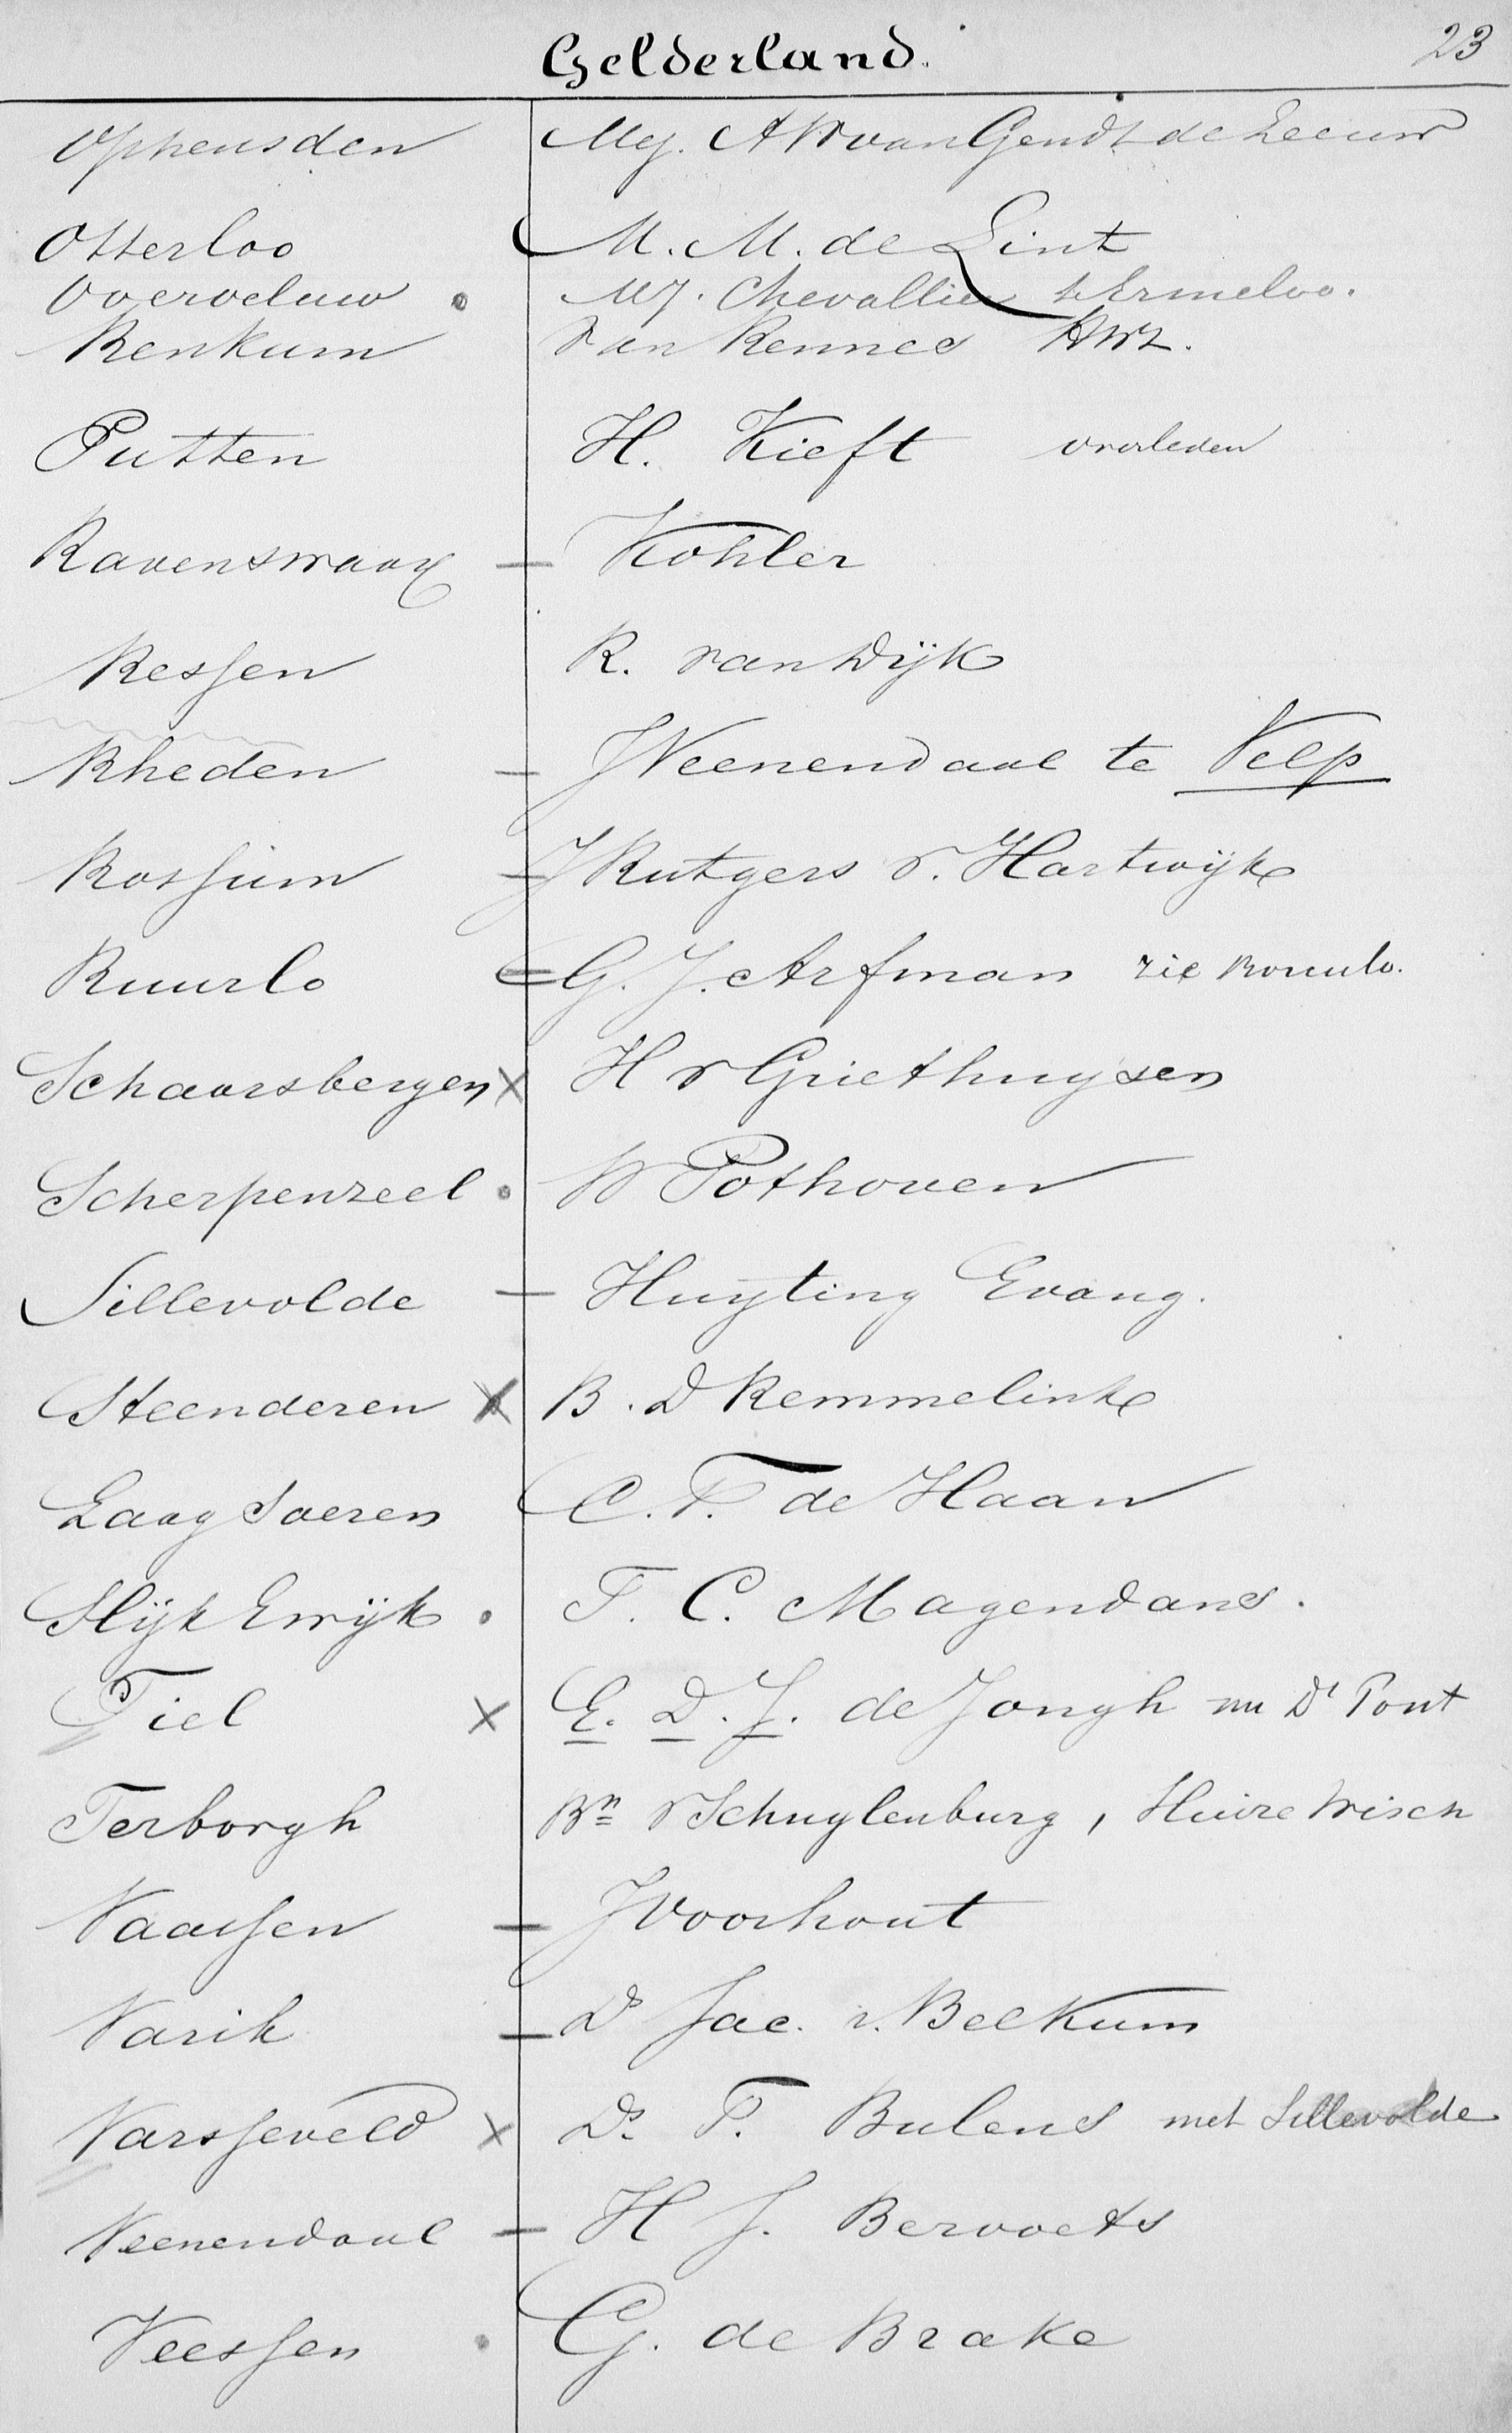 Gelderland. 23
Opheusden Mej. A W van Gendt de Leeuw
Otterloo M. M. de Lint
Overveluw Mej. Chevallier te Ermeloo.
Renkum van Rennes AWz.
Putten H. Kieft overleden
Ravenswaay — Kohler
Ressen R. van Dijk
Rheden — J Veenendaal te Velp
Rossum — J Rutgers v. Hartwijk
Ruurlo — G. J. Arfman zie Borculo.
Schaarsbergen x H v Griethuysen
Scherpenzeel . W Pothoven
Sillevolde — Huyting Evang.
Steenderen x B. D Remmelink
Laag Soeren C. F. de Haan
Slijk Ewijk . F. C. Magendans.
Tiel x E. D. J. de Jongh nu Ds Pont
Terborgh Bn v Schuylenburg, Huize Wisch
Vaassen — J Voorhout
Varik — Ds Jac. v. Belkum
Varsseveld x Ds. F. Bulens met Sillevolde
Veenendaal — H J. Bervoets
Veessen . G. de Brake